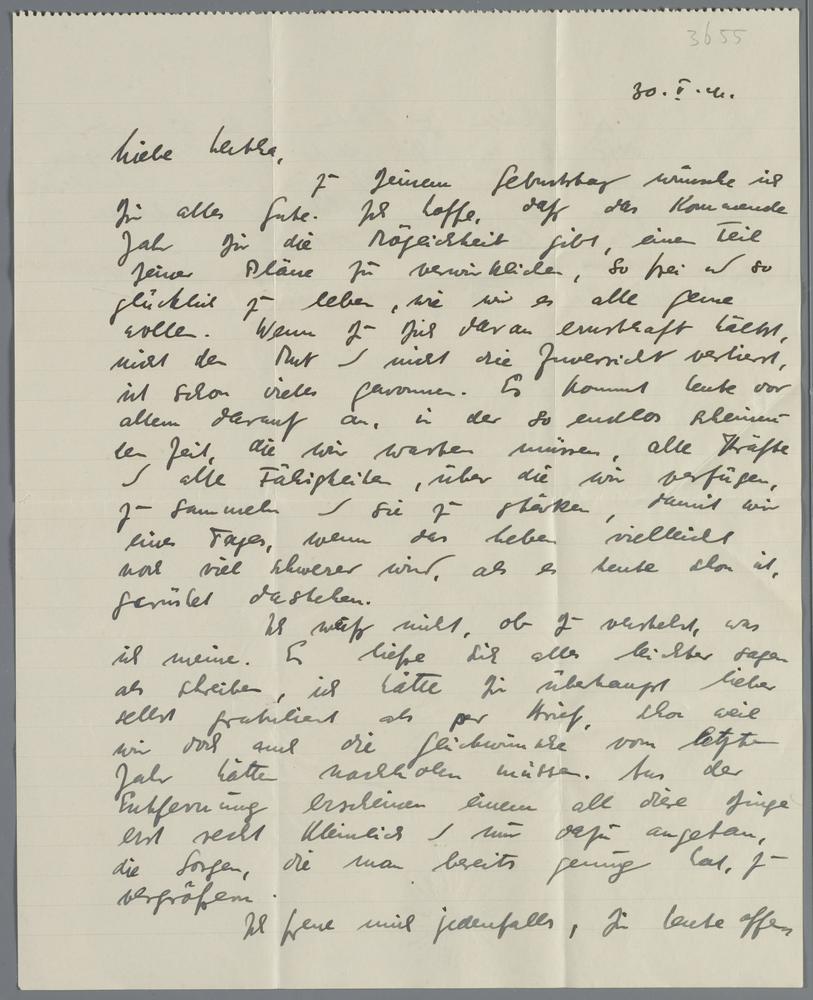 3655
30. V. 41.
Liebe
zu Deinem Geburtstag wünsche ich
Dir alles Gute. Ich hoffe, daß das kommende
Jahr Dir die Möglichkeit gibt, einen Teil
Deiner Pläne zu verwirklichen, so frei und so
glücklich zu leben, wie wir es alle gerne
wollen. Wenn Du Dich daran ernsthaft hältst,
nicht den Mut und nicht die Zuversicht verlierst,
ist schon vieles gewonnen. Es kommt heute vor
allem darauf an, in der so endlos scheinen-
den Zeit, die wir warten müssen, alle Kräfte
und alle Fähigkeiten, über die wir verfügen,
zu sammeln und sie zu stärken, damit wir
eines Tages, wenn das Leben vielleicht
noch viel schwerer wird, als es heute schon ist,
gerüstet dastehen.
Ich weiß nicht, ob Du verstehst, was
ich meine. Es ließe sich alles leichter sagen
als schreiben, ich hätte Dir überhaupt lieber
selbst gratuliert als per Brief, schon weil
wir doch auch die Glückwünsche vom letzten
Jahr hätten nachholen müssen. Aus der
Entfernung erscheinen einem all diese Dinge
erst recht kleinlich und nur dazu angetan,
die Sorgen, die man bereits genug hat, zu
vergrößern.
Ich freue mich jedenfalls, Dir heute offen